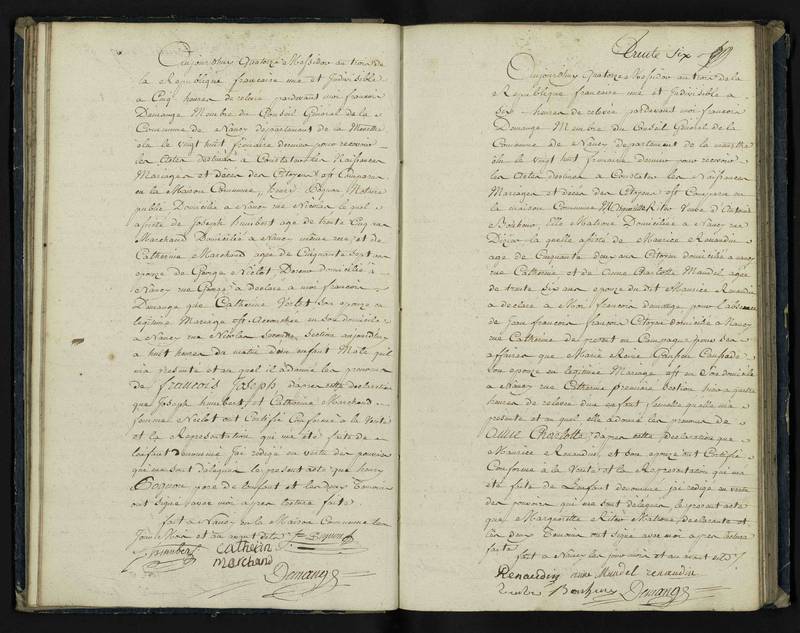 Aujourdhuy Quatorze Messidor an trois de
la République francaise une et Indivisible
a Cinq heures de relevée pardevant moi francois
Damange Membre du Conseil Général de la
Commune de Nancy departement de la Meurthe
élu le vingt huit frimaire dernier pour recevoir
les actes destinés a Constater les Naissances
Mariages et décès des Citoyens est Comparu
en la Maison Commune henry Cognon Notaire
public Domicilié a Nancy rue Nicolas lequel
assisté de Joseph humbert agé de trente Cinq ans
Marchand Domicilié a Nancy même rue et de
Catherine Marchand agée de Cinquante Sept ans
epouze de George Niclot domiciliée a
Nancy rue a déclaré a moi francois
Damange que Catherine son epouze en
légitime Mariage est accouchée en son domicile
a Nancy rue Nicolas Seconde Section aujourdhuy
a huit heures du matin d'un enfant Male qu'il
ma présenté et au quel il a donné les prenoms
de francois Joseph dapres cette declaration
que Joseph humbert et Catherine Marchand
femme Niclot ont Certifié Conforme a la Verité
et la Représentation qui ma été faite de
lenfant dénommé jai rédigé en vertu des pouvoirs
qui me sont délégués le présent acte que henry
Cognon pere de lenfant et les deux Temoins
ont signé avec moi apres lecture faite
fait a Nancy en la Maison Commune les
Jour Mois et an avant dits
humbert Catherin Cognon
marchand
Damange
Trente Six
Aujourdhuy Quatorze Messidor an trois de la
République francaise une et Indivisible a
six heures de relevée pardevant moi francois
Damange Membre du Conseil Général de la
Commune de Nancy departement de la meurthe
élu le vingt huit frimaire dernier pour recevoir
les actes destinés a Constater les Naissances
Mariages et décès des Citoyens est Comparu en
la maison Commune Marguerite Veuve d'Antoine
Elle Matrone Domiciliée a Nancy rue
la quelle assistée de Maurice Renaudin
agé de Cinquante deux ans Citoyen domicilié a nancy
rue Catherine et de Anne Charlotte Mandel agée
de trente six ans epouze du dit Maurice Renaudin
a déclaré a Moi francois damange pour l'absence
de Jean francois francois Citoyen domicilié a Nancy
rue Catherine de present en Campagne pour ses
affaires que Marie
Son epouze en légitime Mariage est en Son domicile
a Nancy rue Catherine premiere Section hier a quatre
heures de relevée d'un enfant femelle quelle ma
presenté et au quel elle a donné les prenoms de
Charlotte, dapres cette déclaration que
Maurice Renaudin et son epouze ont Certifié
Conforme a la Verité et la Représentation qui ma
été faite de Lenfant dénommé jai rédigé en vertu
des pouvoirs qui me sont délégués le présent acte
que Marguerite Matrone déclarante et
les deux Temoins ont signé avec moi apres lecture
faite
fait a Nancy les jour mois et an avant dits
Renaudin anne Mandel renaudin
Damange